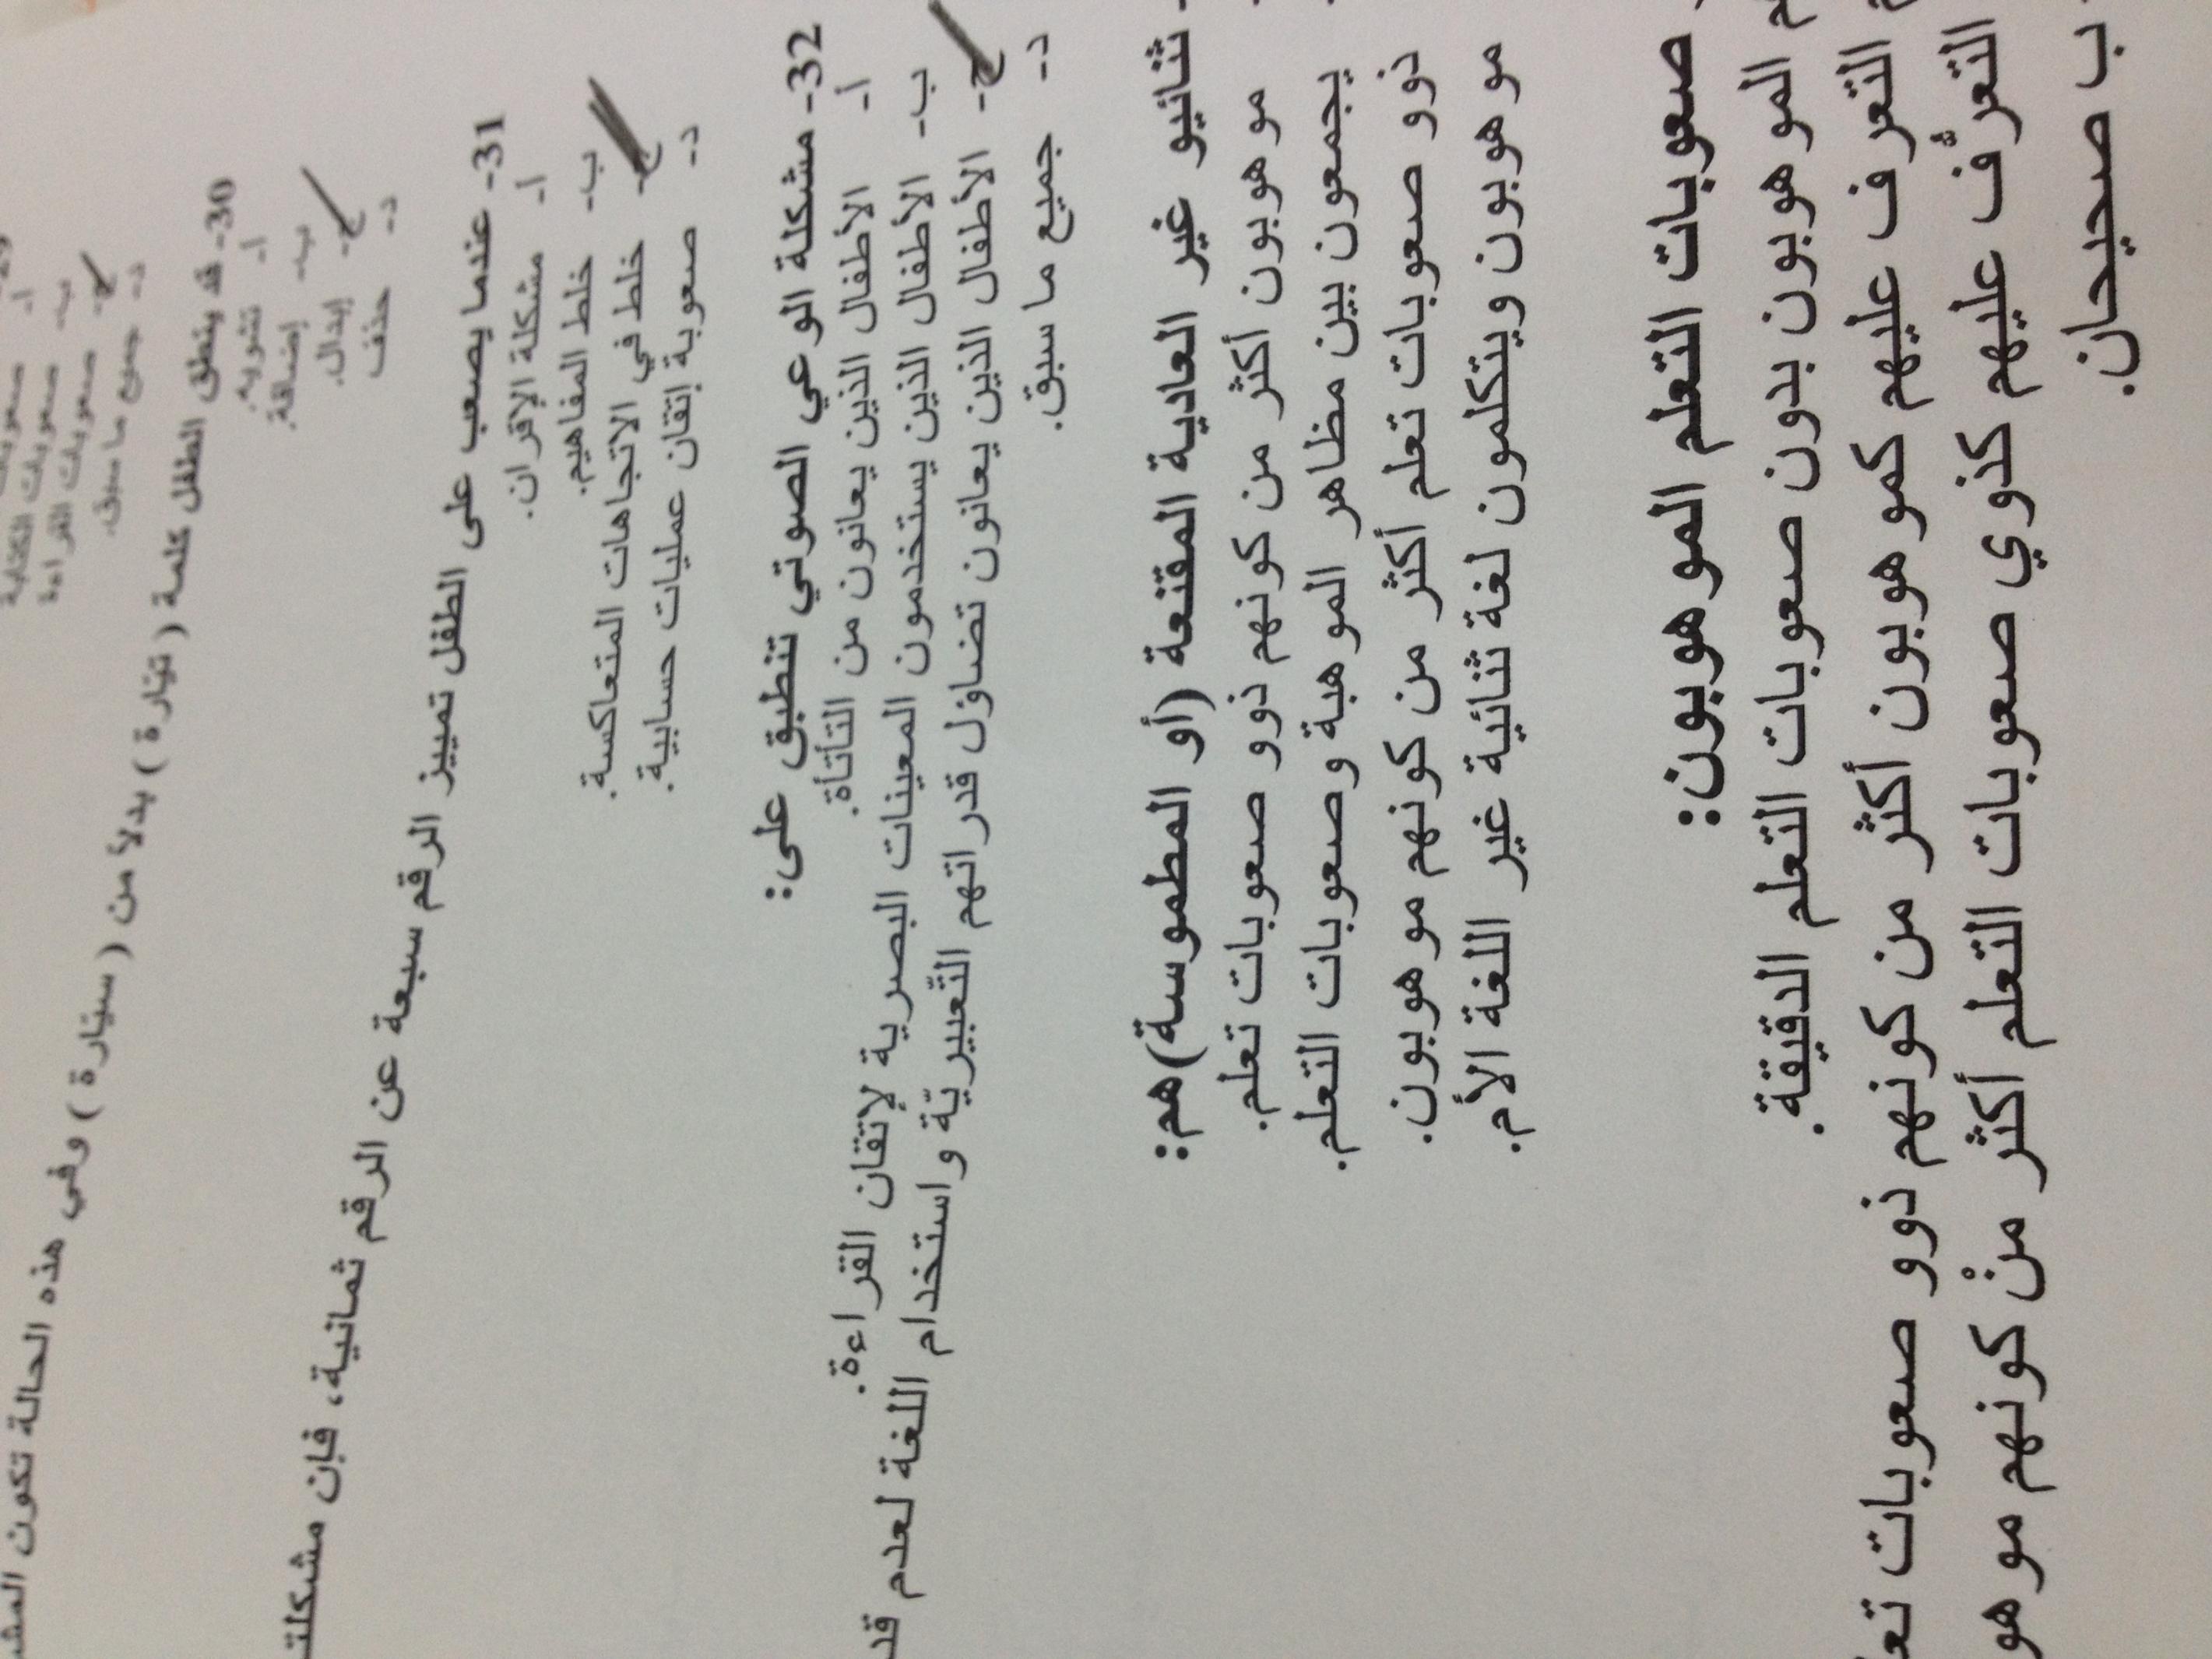 صعوبات الكتابة
صعوبات القراءة
جميع ما سبق.
30- قد ينطق الطفل كلمة ( تيّارة ) بدلاً من ( سيّارة ) وفي هذه الحالة تكون
أ- تشويه.
ب- إضافة.
ج- إبدال.
د- حذف
31- عندما يصعب على الطفل تمييز الرقم سبعة عن الرقم ثمانية، فإن
أ- مشكلة الإقران.
ب- خلط المفاهيم.
ج- خلط في الاتجاهات المتعاكسة.
د- صعوبة إتقان عمليات حسابية.
32- مشكلة الوعي الصوتي تنطبق على:
أ- الأطفال الذين يعانون من التأتأة.
ب- الأطفال الذين يستخدمون المعينات البصرية لإتقان القراءة.
ج- الأطفال الذين يعانون تضاؤل قدراتهم التّعبيريّة واستخدام اللغة لعدم
د- جميع ما سبق.
ثنائيو غير العادية المقنعة (أو المطموسة)هم:
موهوبون أكثر من كونهم ذوو صعوبات تعلم.
يجمعون بين مظاهر الموهبة وصعوبات التعلم.
ذوو صعوبات تعلم أكثر من كونهم موهوبون.
موهوبون ويتكلمون لغة ثنائية غير اللغة الأم.
صعوبات التعلم الموهوبون:
الموهوبون بدون صعوبات التعلم الدقيقة.
التعرف عليهم كموهوبون أكثر من كونهم ذوو صعوبات
التعرُّف عليهم كذوي صعوبات التعلم أكثر منْ كونهم
ب صحيحان.